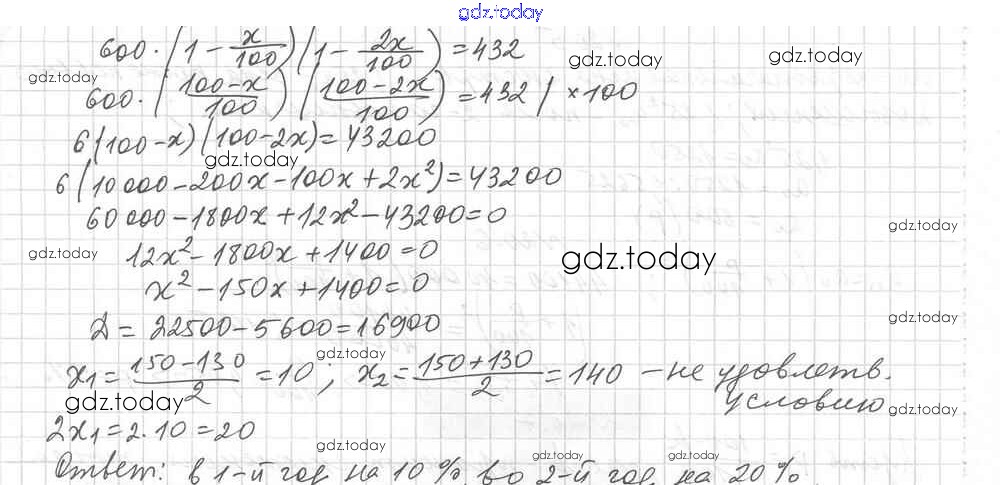 gdz.today
600·(1 - x/100)(1 - 2x/100) = 432
gdz.today gdz.today gdz.today
600·((100-x)/100)((100-2x)/100) = 432 | ×100
6(100-x)(100-2x) = 43200
gdz.today
6(10000-200x-100x+2x²) = 43200
60000-1800x+12x²-43200=0
gdz.today
12x²-1800x+1400=0
gdz.today gdz.today
x²-150x+1400=0
gdz.today
D = 22500-5600=16900
gdz.today
x₁ = (150-130)/2 = 10; x₂ = (150+130)/2 = 140 - не удовлетв.
условию
gdz.today gdz.today
2x₁=2·10=20
gdz.today gdz.today gdz.today
Ответ: в 1-й год на 10%, во 2-й год на 20%